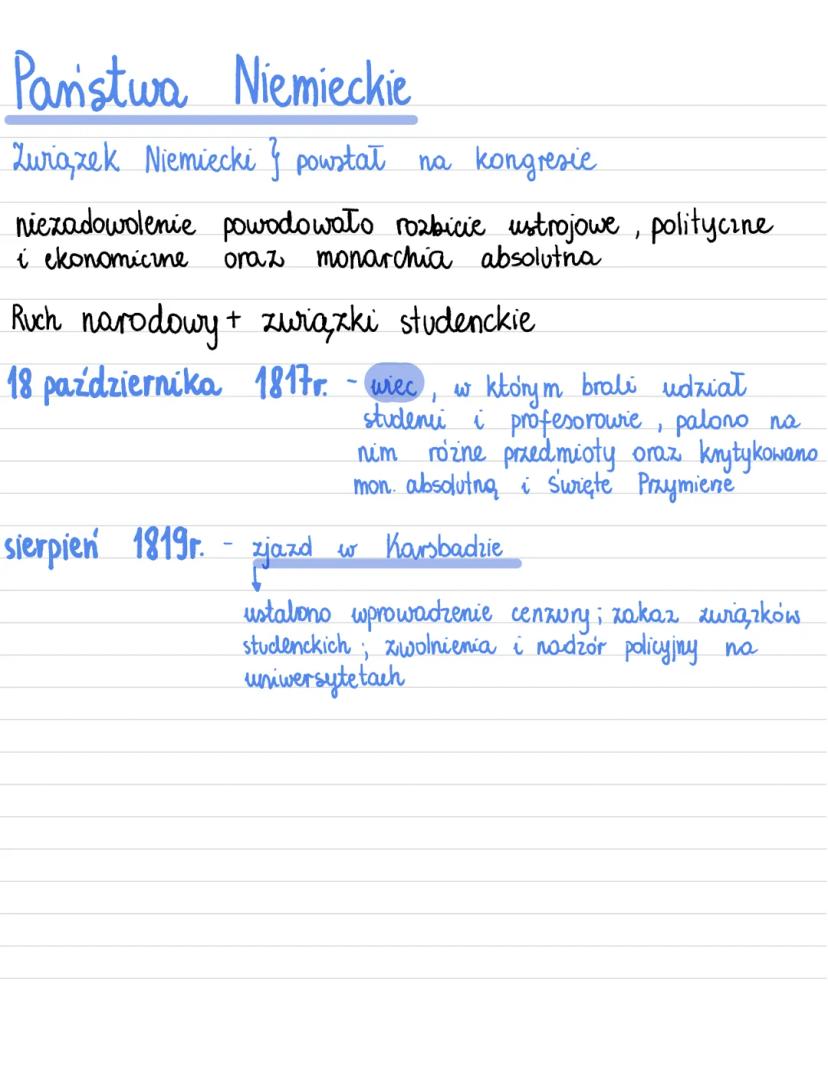 Państwa Niemieckie
Związek Niemiecki } powstał na kongresie
niezadowolenie powodowało rozbicie ustrojowe, polityczne
i ekonomiczne oraz monarchia absolutna
Ruch narodowy + związki studenckie
18 października 1817r. - wiec, w którym brali udział
studenci i profesorowie, palono na
nim różne przedmioty oraz krytykowano
mon. absolutną i Święte Przymierze
sierpień 1819r. - zjazd w Karsbadzie
ustalono wprowadzenie cenzury; zakaz związków
studenckich; zwolnienia i nadzór policyjny na
uniwersytetach